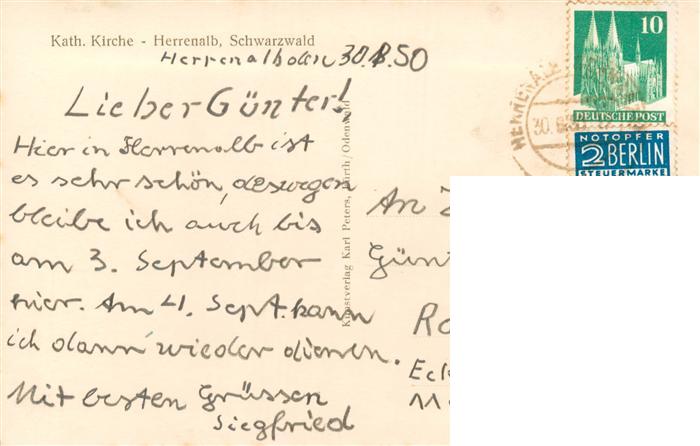 Kath. Kirche - Herrenalb, Schwarzwald
Herrenalb den 30.8.50
Lieber Günter!
Hier in Herrenalb ist
es sehr schön, deswegen
bleibe ich auch bis
am 3. September
hier. Am 4. Sept. kann
ich dann wieder dienen.
Mit besten Grüssen
Siegfried
Kunstverlag Karl Peters, Fürth/Odenwald
10
DEUTSCHE POST
NOTOPFER
2 BERLIN
STEUERMARKE
An
Günt
Ro
Eck